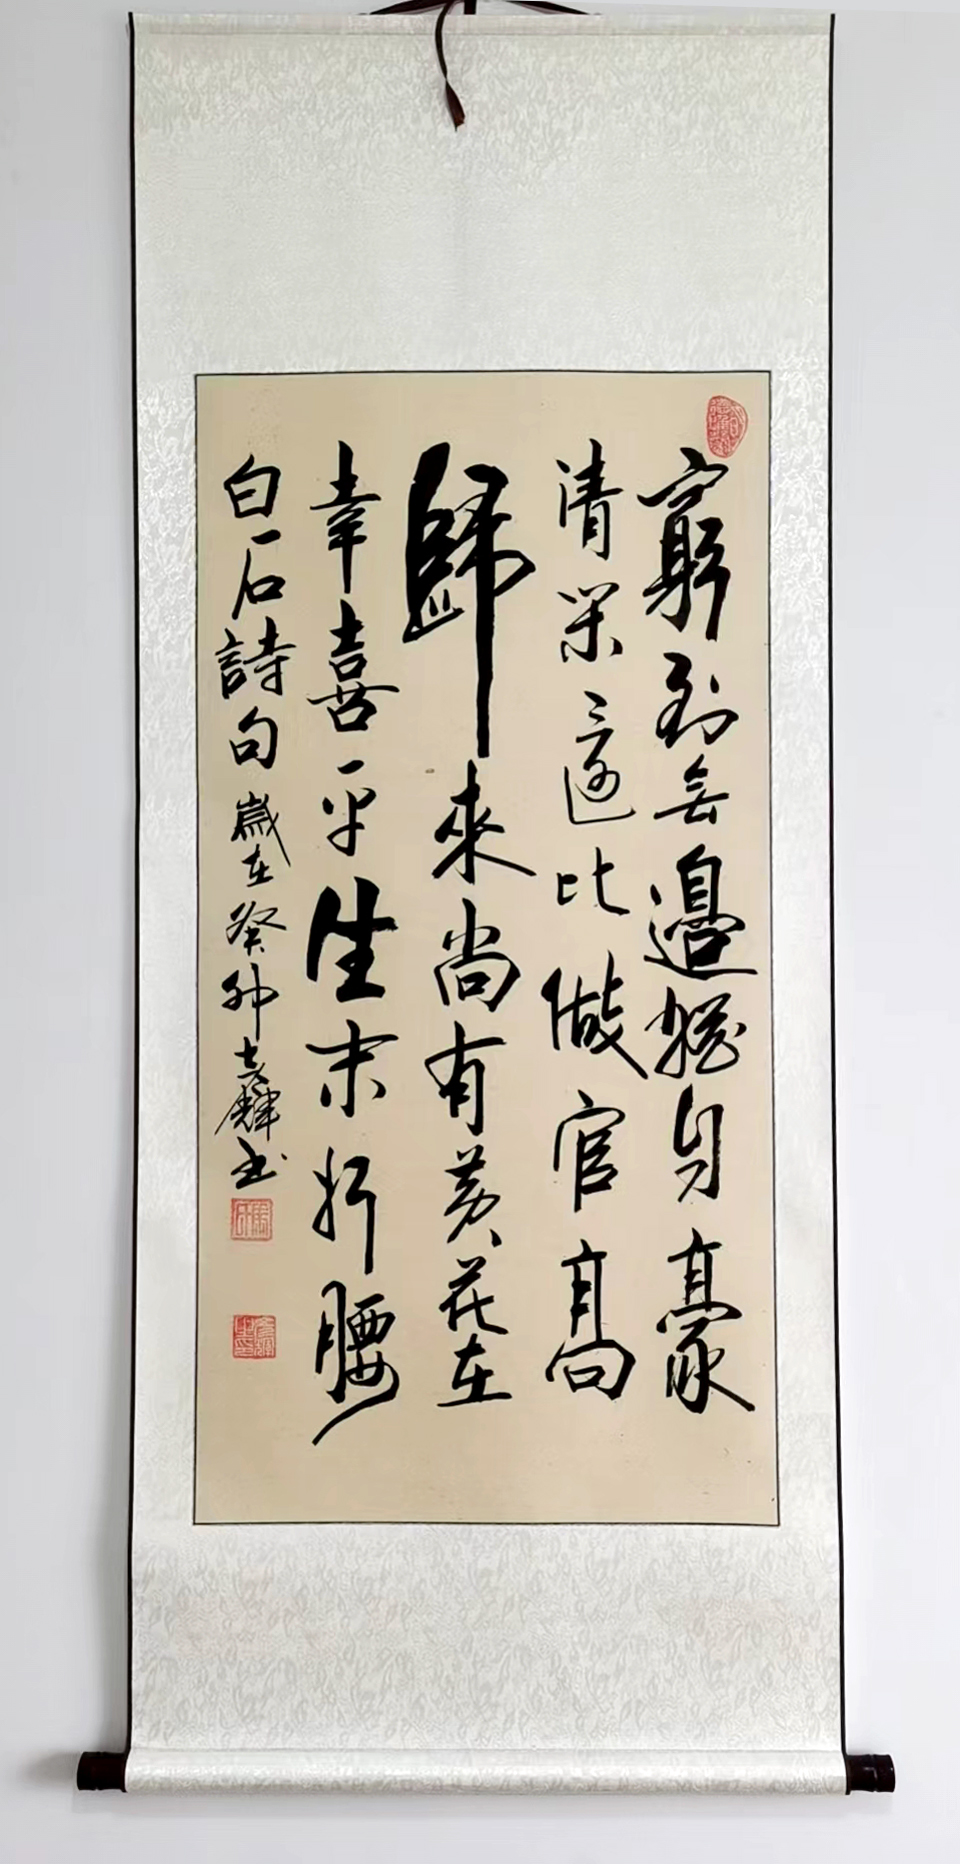 窮到無邊猶自豪
清閑還比做官高
歸來尚有黃花在
幸喜平生未折腰
白石詩句 歲在癸卯 書